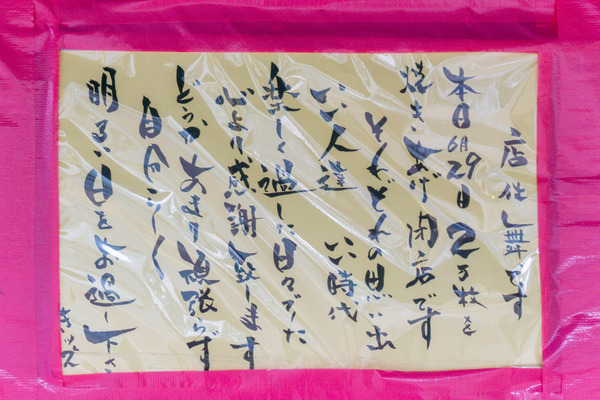 店仕舞です
本日6月29日2万枚を
焼きあげ閉店です
それぞれの思い出
いい人達 いい時代
楽しく過した日々でした
心より感謝致します
どうかあまり頑張らず
自分らしく
明るい日をお過し下さい
キッス